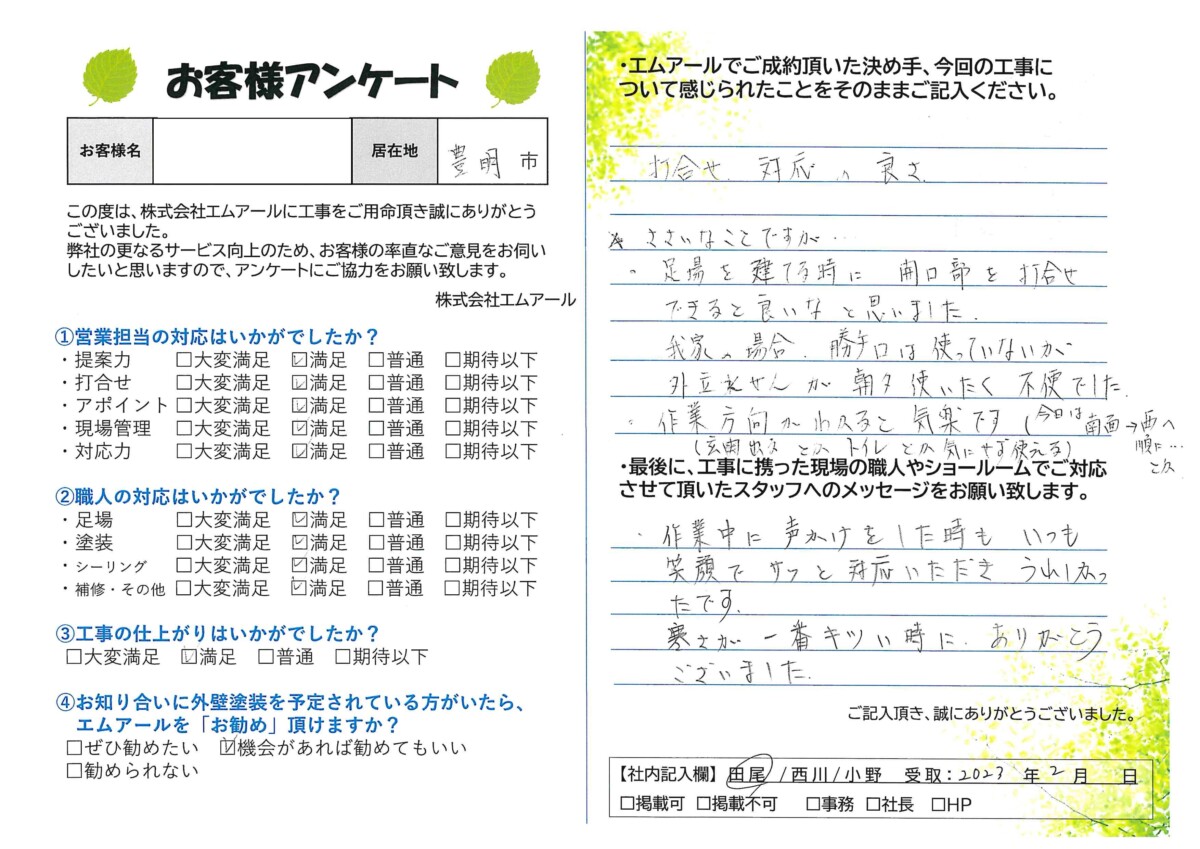 お客様アンケート
お客様名
居在地
豊明 市
この度は、株式会社エムアールに工事をご用命頂き誠にありがとう
ございました。
弊社の更なるサービス向上のため、お客様の率直なご意見をお伺い
したいと思いますので、アンケートにご協力をお願い致します。
株式会社エムアール
①営業担当の対応はいかがでしたか？
・提案力 □大変満足 ☑満足 □普通 □期待以下
・打合せ □大変満足 ☑満足 □普通 □期待以下
・アポイント □大変満足 ☑満足 □普通 □期待以下
・現場管理 □大変満足 ☑満足 □普通 □期待以下
・対応力 □大変満足 ☑満足 □普通 □期待以下
②職人の対応はいかがでしたか？
・足場 □大変満足 ☑満足 □普通 □期待以下
・塗装 □大変満足 ☑満足 □普通 □期待以下
・シーリング □大変満足 ☑満足 □普通 □期待以下
・補修・その他 □大変満足 ☑満足 □普通 □期待以下
③工事の仕上がりはいかがでしたか？
□大変満足 ☑満足 □普通 □期待以下
④お知り合いに外壁塗装を予定されている方がいたら、
エムアールを「お勧め」頂けますか？
□ぜひ勧めたい ☑機会があれば勧めてもいい
□勧められない
・エムアールでご成約頂いた決め手、今回の工事に
ついて感じられたことをそのままご記入ください。
打合せ、対応の良さ。
※ ささいなことですが…
・足場を建てる時に 開口部を打合せ
できると良いなと思いました。
我家の場合、勝手口は使っていないが
外立水せんが朝夕使いたく不便でした。
・作業方向がわかると気楽です(今日は南面→西へ
順に…
とか
(玄関出るとかトイレとか気にせず使える)
・最後に、工事に携った現場の職人やショールームでご対応
させて頂いたスタッフへのメッセージをお願い致します。
・作業中に声かけをした時も いつも
笑顔でサッと対応いただき うれしかっ
たです。
寒さが一番キツい時に、ありがとう
ございました。
ご記入頂き、誠にありがとうございました。
【社内記入欄】田尾/西川/小野 受取:2023 年 2 月 日
□掲載可 □掲載不可 □事務 □社長 □HP